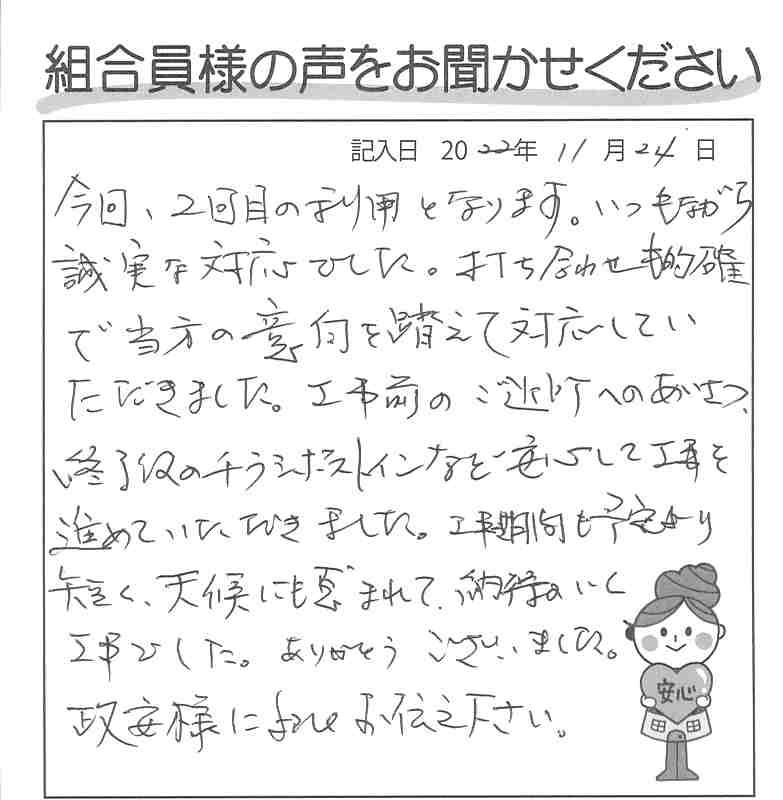 組合員様の声をお聞かせください
記入日 2022年 11月24日
今回、2回目の利用となります。いつもながら
誠実な対応でした。打ち合わせも的確
で当方の意向を踏えて対応してい
ただきました。工事前のご近所へのあいさつ、
終了後のチラシポストインなど安心して工事を
進めていただきました。工事期間も予定より
短く、天候にも恵まれて、納得のいく
工事でした。ありがとうございました。
政安様によろしくお伝え下さい。
安心